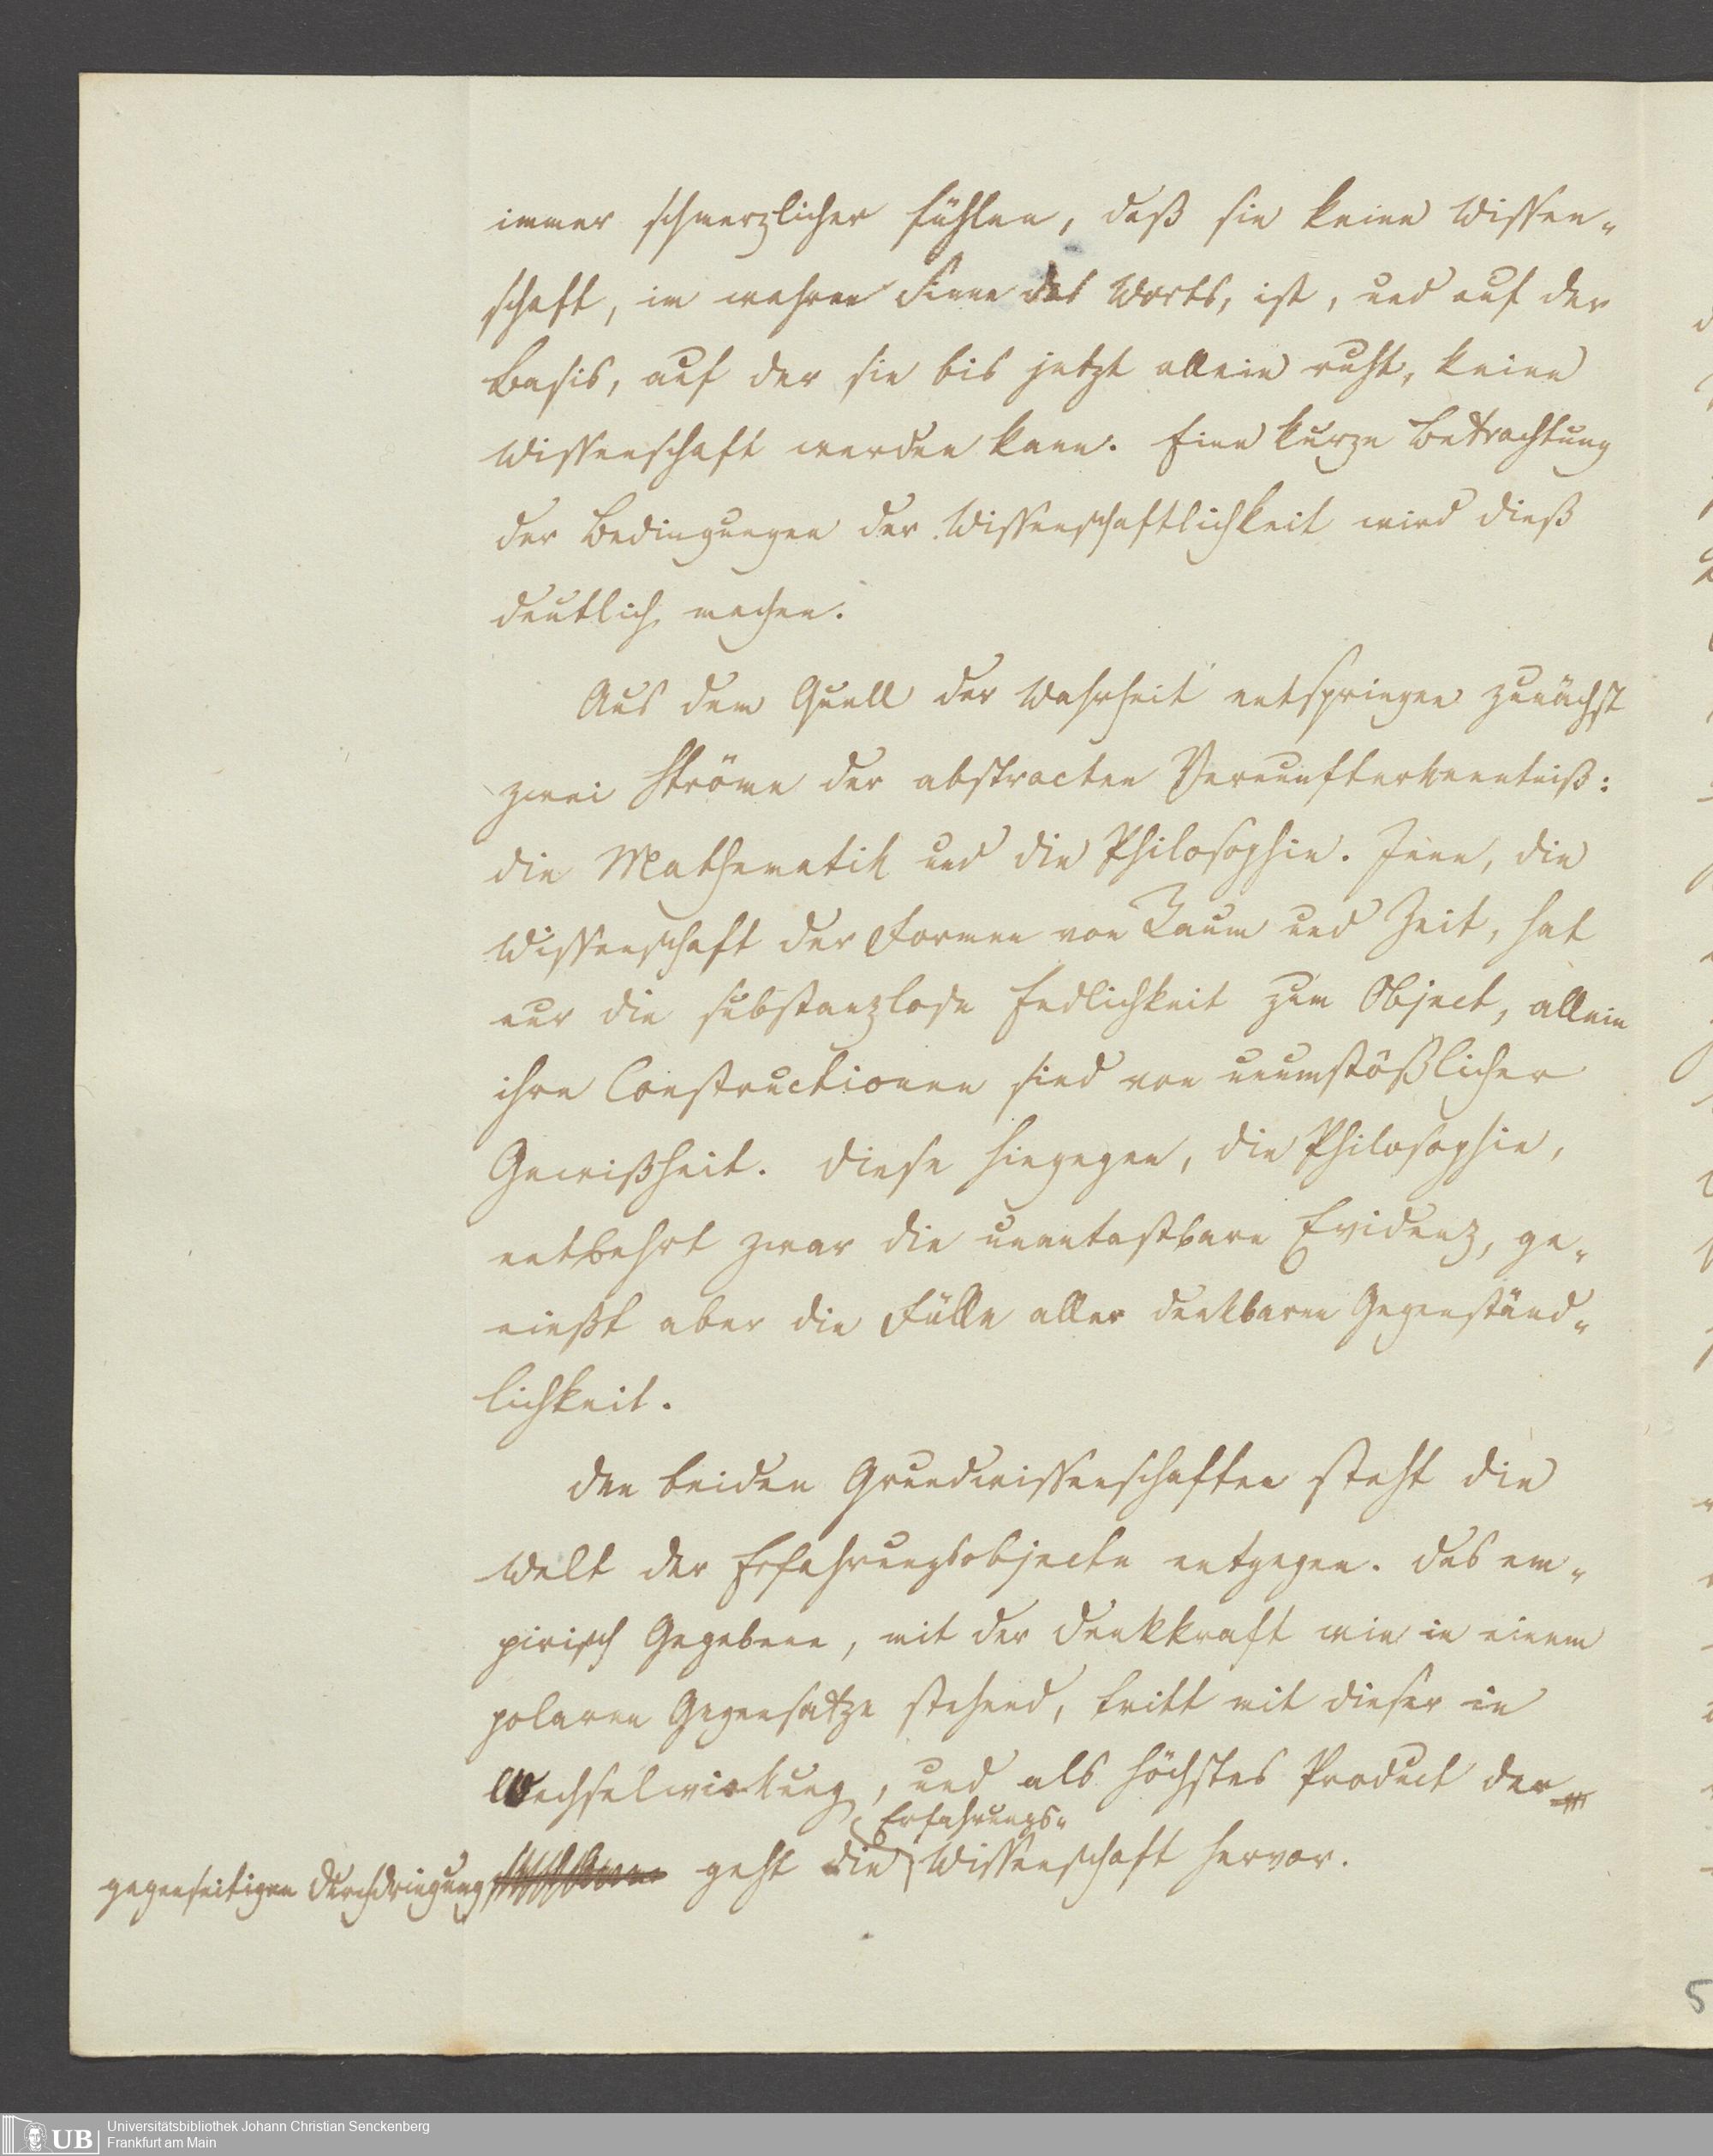 immer schmerzlicher fühlen, daß sie keine Wissen-
schaft, im wahren Sinne des Worts, ist, und auf der
Basis, auf der sie bis jetzt allein ruht, keine
Wissenschaft werden kann. Eine kurze Betrachtung
der Bedingungen der Wissenschaftlichkeit wird dieß
deutlich machen.
Aus dem Quell der Wahrheit entspringen zunächst
zwei Ströme der abstracten Vernunfterkenntniß:
die Mathematik und die Philosophie. Jene, die
Wissenschaft der Formen von Raum und Zeit, hat
nur die substanzlose Endlichkeit zum Object, allein
ihre Constructionen sind von unumstößlicher
Gewißheit. Diese hingegen, die Philosophie,
entbehrt zwar die unantastbare Evidenz, ge-
nießt aber die Fülle aller denkbaren Gegenständ-
lichkeit.
Den beiden Grundwissenschaften steht die
Welt der Erfahrungsobjecte entgegen. Das em-
pirisch Gegebene, mit der Denkkraft wie in einem
polaren Gegensatze stehend, tritt mit dieser in
Wechselwirkung, und als höchstes Product der
Erfahrungs-
gegenseitigen Durchdringung geht die Wissenschaft hervor.
5
UB
Universitätsbibliothek Johann Christian Senckenberg
Frankfurt am Main